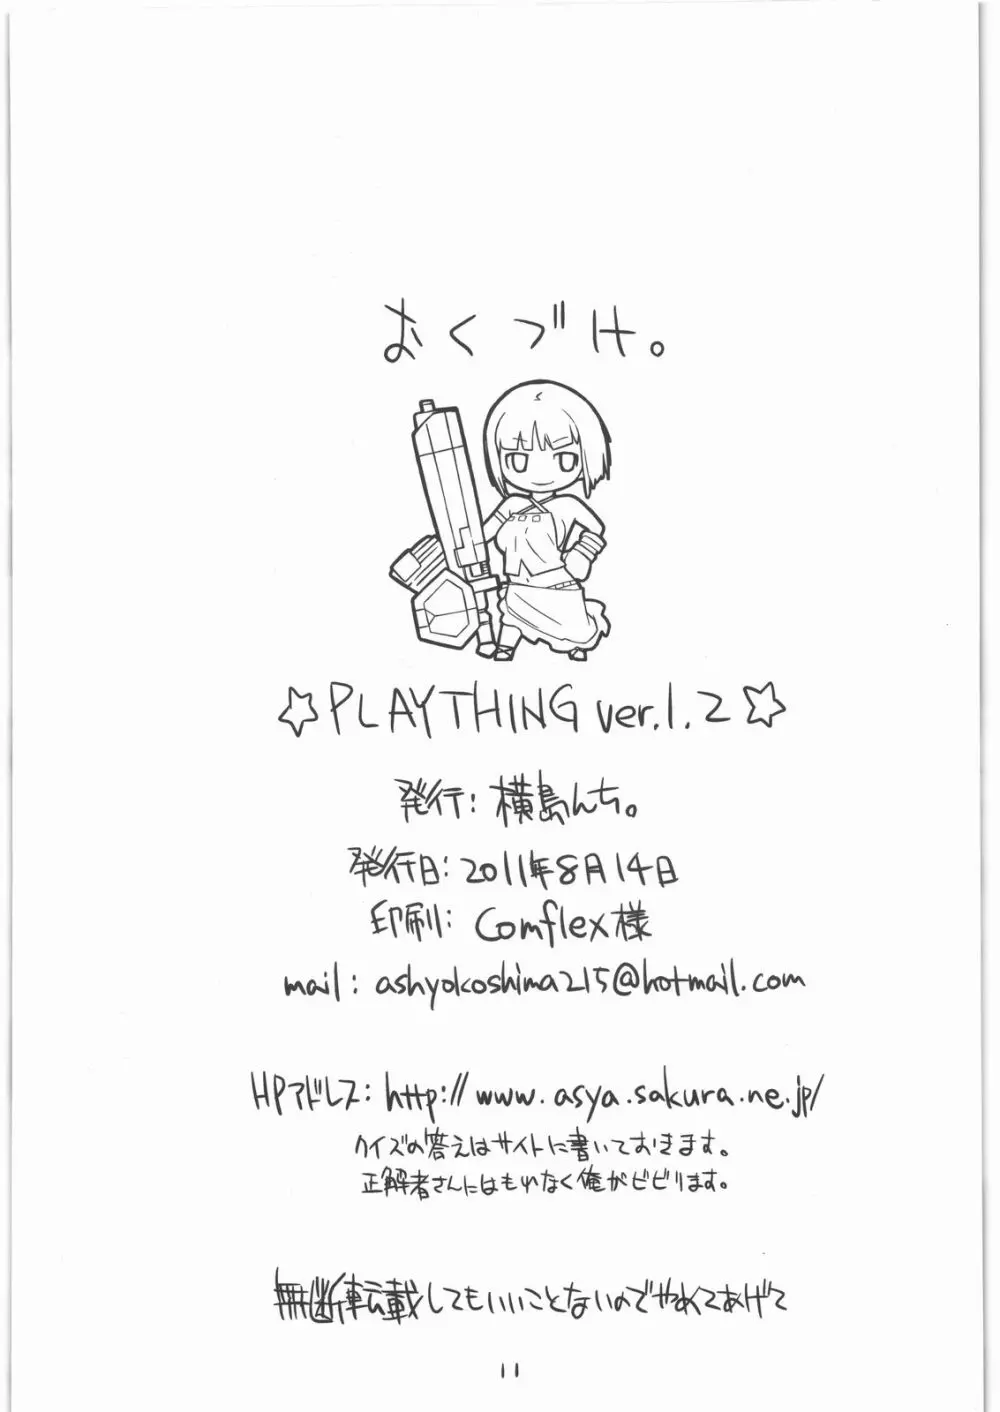 おくづけ。
☆PLAYTHING ver.1.2☆
発行:横島んち。
発行日:2011年8月14日
印刷:Comflex様
mail:ashyokoshima215@hotmail.com
HPアドレス:http://www.asya.sakura.ne.jp/
クイズの答えはサイトに書いておきます。
正解者さんにはもれなく俺がビビります。
無断転載してもいいことないのでやめてあげて
11